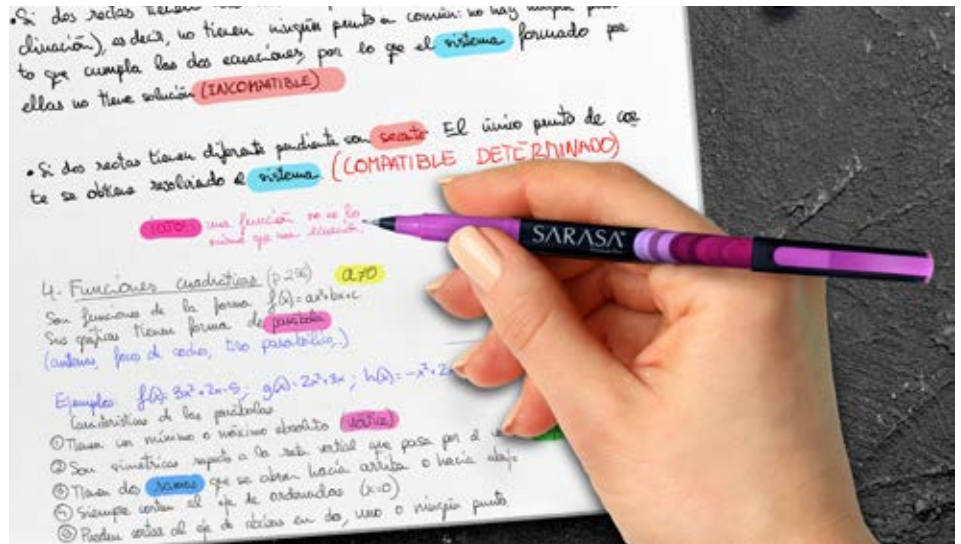 •Si dos rectas tienen
clinación), es decir, no tienen ningún punto en común: no hay ningún pun
to que cumpla las dos ecuaciones, por lo que el sistema formado por
ellas no tiene solución (INCOMPATIBLE)
• Si dos rectas tienen diferente pendiente son secantes. El único punto de cor
te se obtiene resolviendo el sistema (COMPATIBLE DETERMINADO)
una función no es lo
mismo que una ecuación.
SARASA
4. Funciones cuadráticas (p.236) a≠0
Son funciones de la forma f(x)=ax²+bx+c
Sus gráficas tienen forma de parábola
(antenas, foco de coches, tiro parabólico,..)
Ejemplos: f(x)=3x²+2x-5; g(x)=2x²+3x; h(x)=-x²+2
Características de las parábolas
① Tienen un mínimo o máximo absoluto (vértice)
② Son simétricas respecto a la recta vertial que pasa por el
③ Tienen dos ramas que se abren hacia arriba o hacia abajo
④ Siempre cortan al eje de ordenadas (x=0)
⑤ Pueden cortar al eje de abcisas en dos, uno o ningún punto.